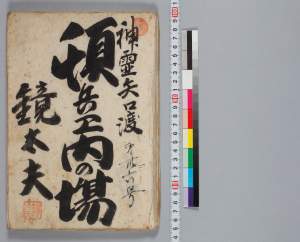 神霊矢口渡
頓兵衛内の場
鏡太夫